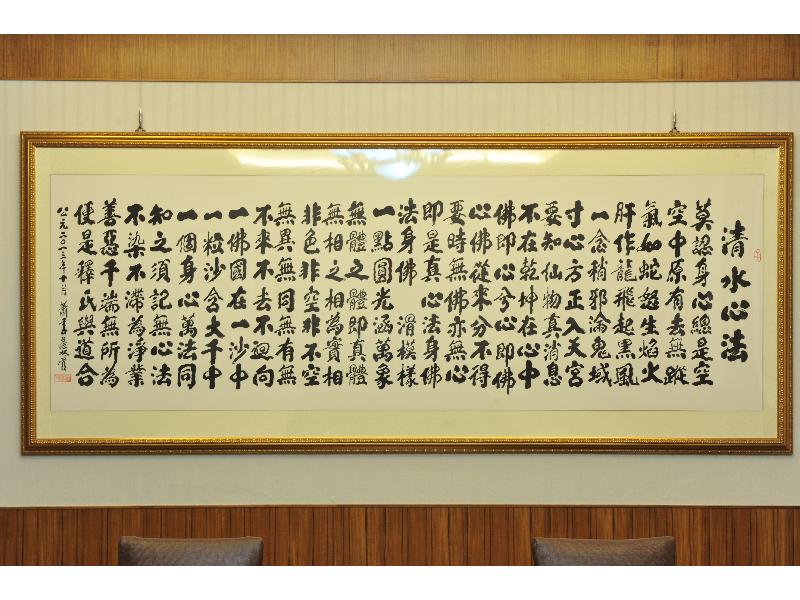 清水心法
莫認身心總是空
空中原有去無蹤
氣如蛇怒生焰火
肝作龍飛起黑風
一念稍邪淪鬼域
寸心方正入天宮
要知仙物真消息
不在乾坤在心中
佛即心兮心即佛
心佛從來分不得
要時無佛亦無心
即是真心法身佛
法身佛 滑模樣
一點圓光涵萬象
無體之體即真體
無相之相為實相
非色非空非不空
無異無同無有無
不來不去不迴向
一佛國在一沙中
一粒沙含大千中
一個身心萬法同
知之須記無心法
不染不滯為淨業
善惡千端無所為
便是釋氏與道合
公元二〇一三年十月